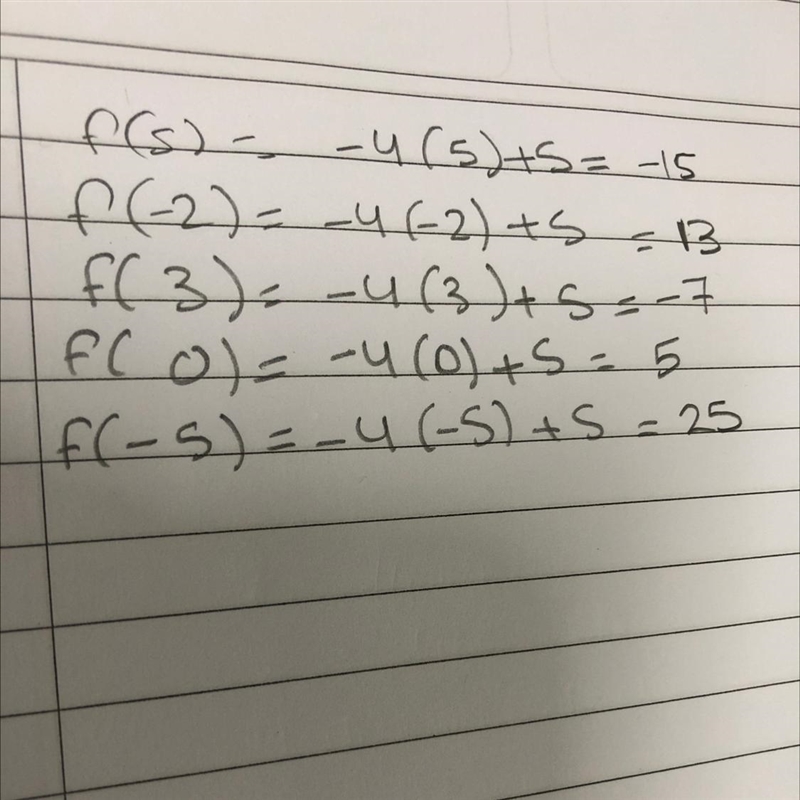 f(5) = -4(5)+5 = -15
f(-2) = -4(-2)+5 = 13
f(3) = -4(3)+5 = -7
f(0) = -4(0)+5 = 5
f(-5) = -4(-5)+5 = 25